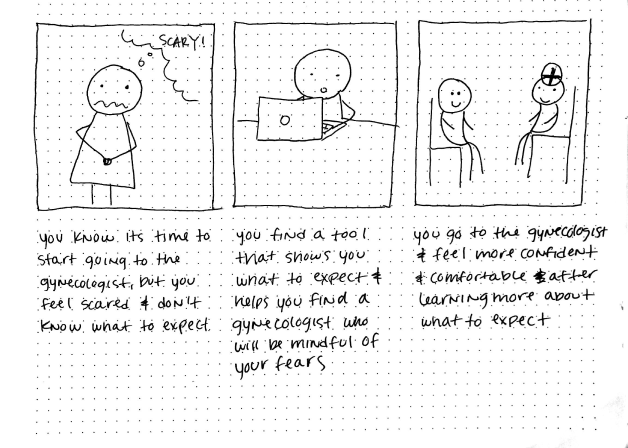 SCARY!
you know its time to
start going to the
gynecologist, but you
feel scared & don't
know what to expect
you find a tool
that shows you
what to expect &
helps you find a
gynecologist who
will be mindful of
your fears
you go to the gynecologist
& feel more confident
& comfortable & after
learning more about
what to expect